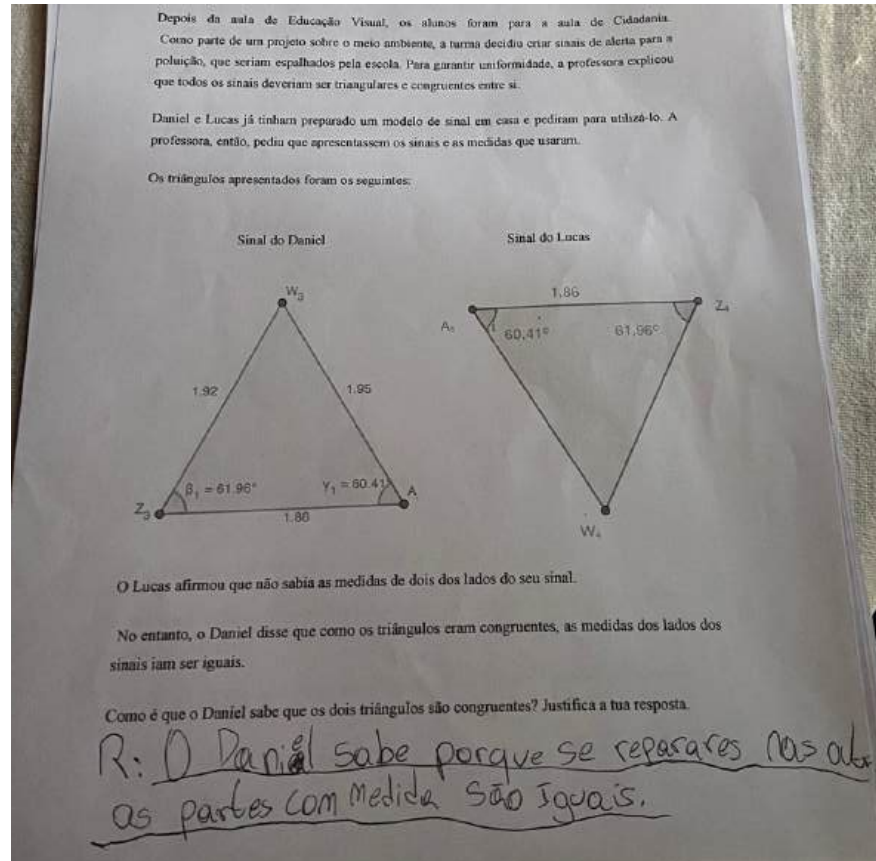 Depois da aula de Educação Visual, os alunos foram para a aula de Cidadania.
Como parte de um projeto sobre o meio ambiente, a turma decidiu criar sinais de alerta para a
poluição, que seriam espalhados pela escola. Para garantir uniformidade, a professora explicou
que todos os sinais deveriam ser triangulares e congruentes entre si.
Daniel e Lucas já tinham preparado um modelo de sinal em casa e pediram para utilizá-lo. A
professora, então, pediu que apresentassem os sinais e as medidas que usaram.
Os triângulos apresentados foram os seguintes:
Sinal do Daniel
Sinal do Lucas
W₃
1.92
1.95
β₁ = 61.96°
γ₁ = 60.41
Z₃
A
1.86
1,86
A₁
Z₄
60,41º
61,96º
W₄
O Lucas afirmou que não sabia as medidas de dois dos lados do seu sinal.
No entanto, o Daniel disse que como os triângulos eram congruentes, as medidas dos lados dos
sinais iam ser iguais.
Como é que o Daniel sabe que os dois triângulos são congruentes? Justifica a tua resposta.
R: O Daniel sabe porque se reparares nas
as partes com medida são Iguais.